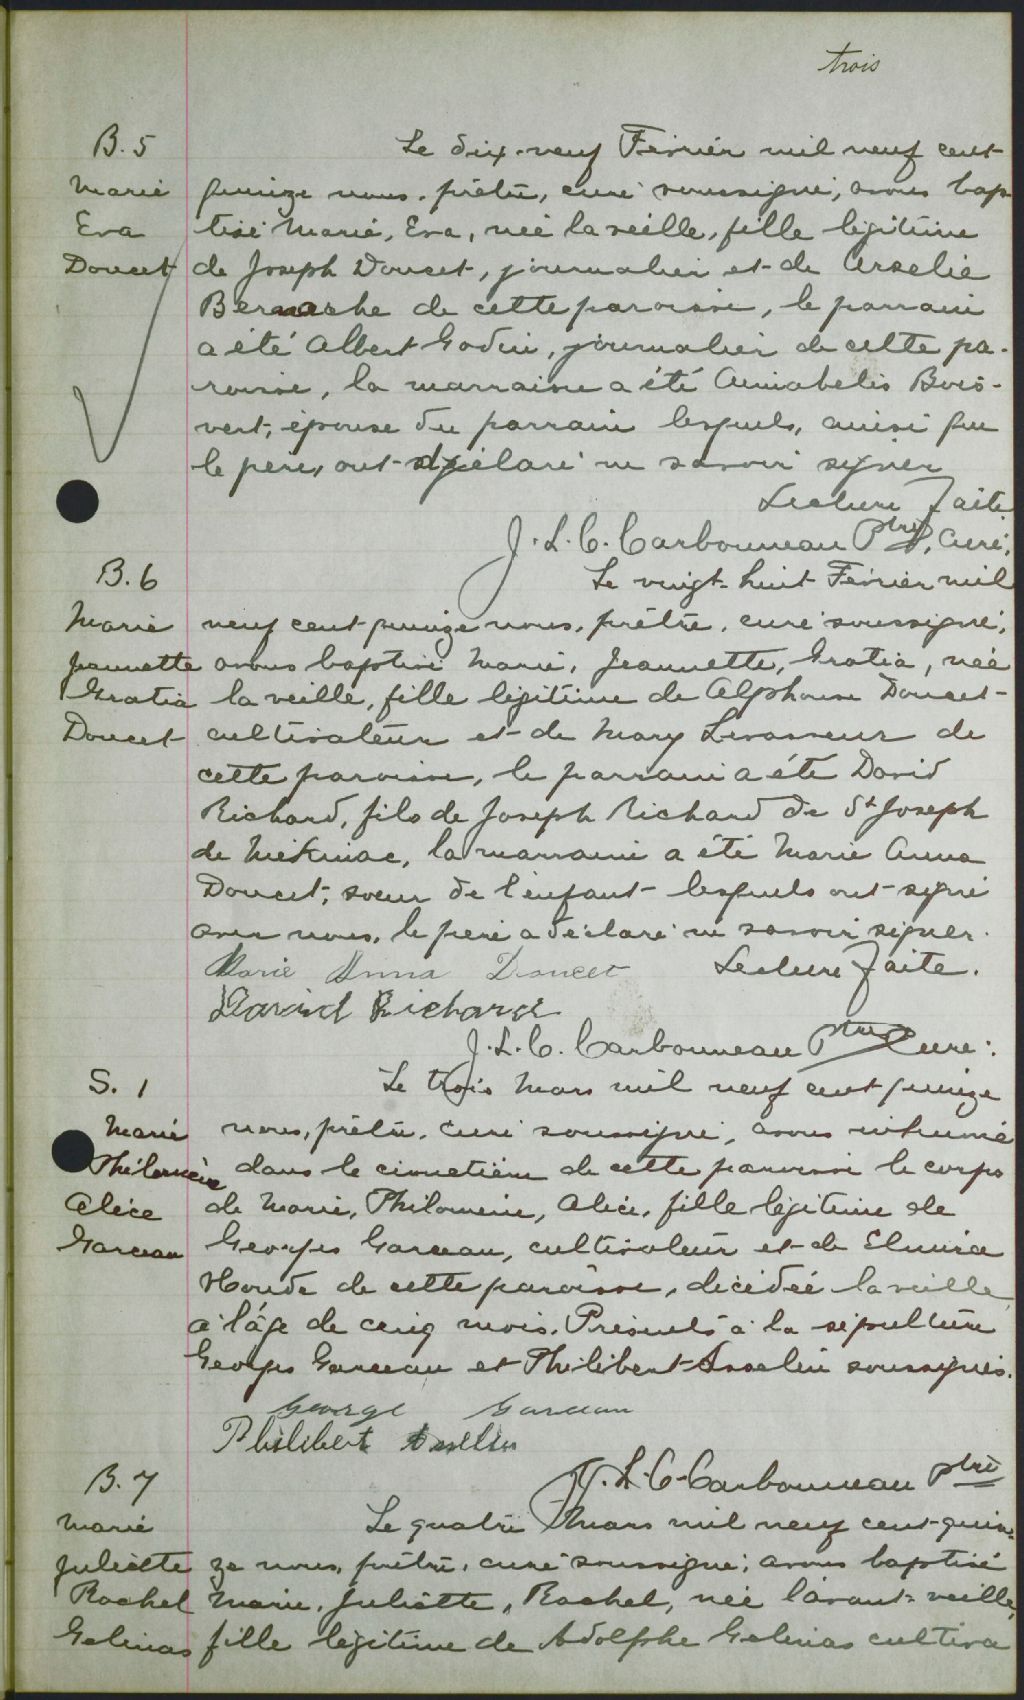 trois
B. 5
Marie
Eva
Doucet
Le dix-neuf Février mil neuf cent
quinze nous, prêtre, curé soussigné, avons bap-
tisé Marie, Eva, née la veille, fille légitime
de Joseph Doucet, journalier et de Arzelie
Bernache de cette paroisse, le parrain
a été Albert Godin, journalier de cette pa-
roisse, la marraine a été Bois-
vert, épouse du parrain lesquels, ainsi que
le père, ont déclaré ne savoir signer
Lecture faite
J. L. C. Carbonneau Ptre, Curé.
B. 6
Marie
Jeannette
Gratia
Doucet
Le vingt-huit Février mil
neuf cent quinze nous, prêtre, curé soussigné,
avons baptisé Marie, Jeannette, Gratia, née
la veille, fille légitime de Alphonse Doucet
cultivateur et de Mary Levasseur de
cette paroisse, le parrain a été David
Richard, fils de Joseph Richard de St Joseph
de Mékinac, la marraine a été Marie Anna
Doucet, soeur de l'enfant lesquels ont signé
avec nous, le père a déclaré ne savoir signer.
Lecture faite.
Marie Anna Doucet
David Richard
J. L. C. Carbonneau Ptre Curé.
S. 1
Marie
Philomène
Alice
Garceau
Le trois Mars mil neuf cent quinze
nous, prêtre, curé soussigné, avons inhumé
dans le cimetière de cette paroisse le corps
de Marie, Philomène, Alice, fille légitime de
Georges Garceau, cultivateur et de Elmira
Houde de cette paroisse, décédée la veille
a l'âge de cinq mois. Présents à la sépulture
Georges Garceau et Philibert Asselin soussignés.
George Garceau
Philibert Asselin
J. L. C. Carbonneau ptre
B. 7
Marie
Juliette
Rachel
Gelinas
Le quatre Mars mil neuf cent quin-
ze nous, prêtre, curé soussigné, avons baptisé
Marie, Juliette, Rachel, née l'avant-veille,
fille légitime de Adolphe Gelinas cultiva